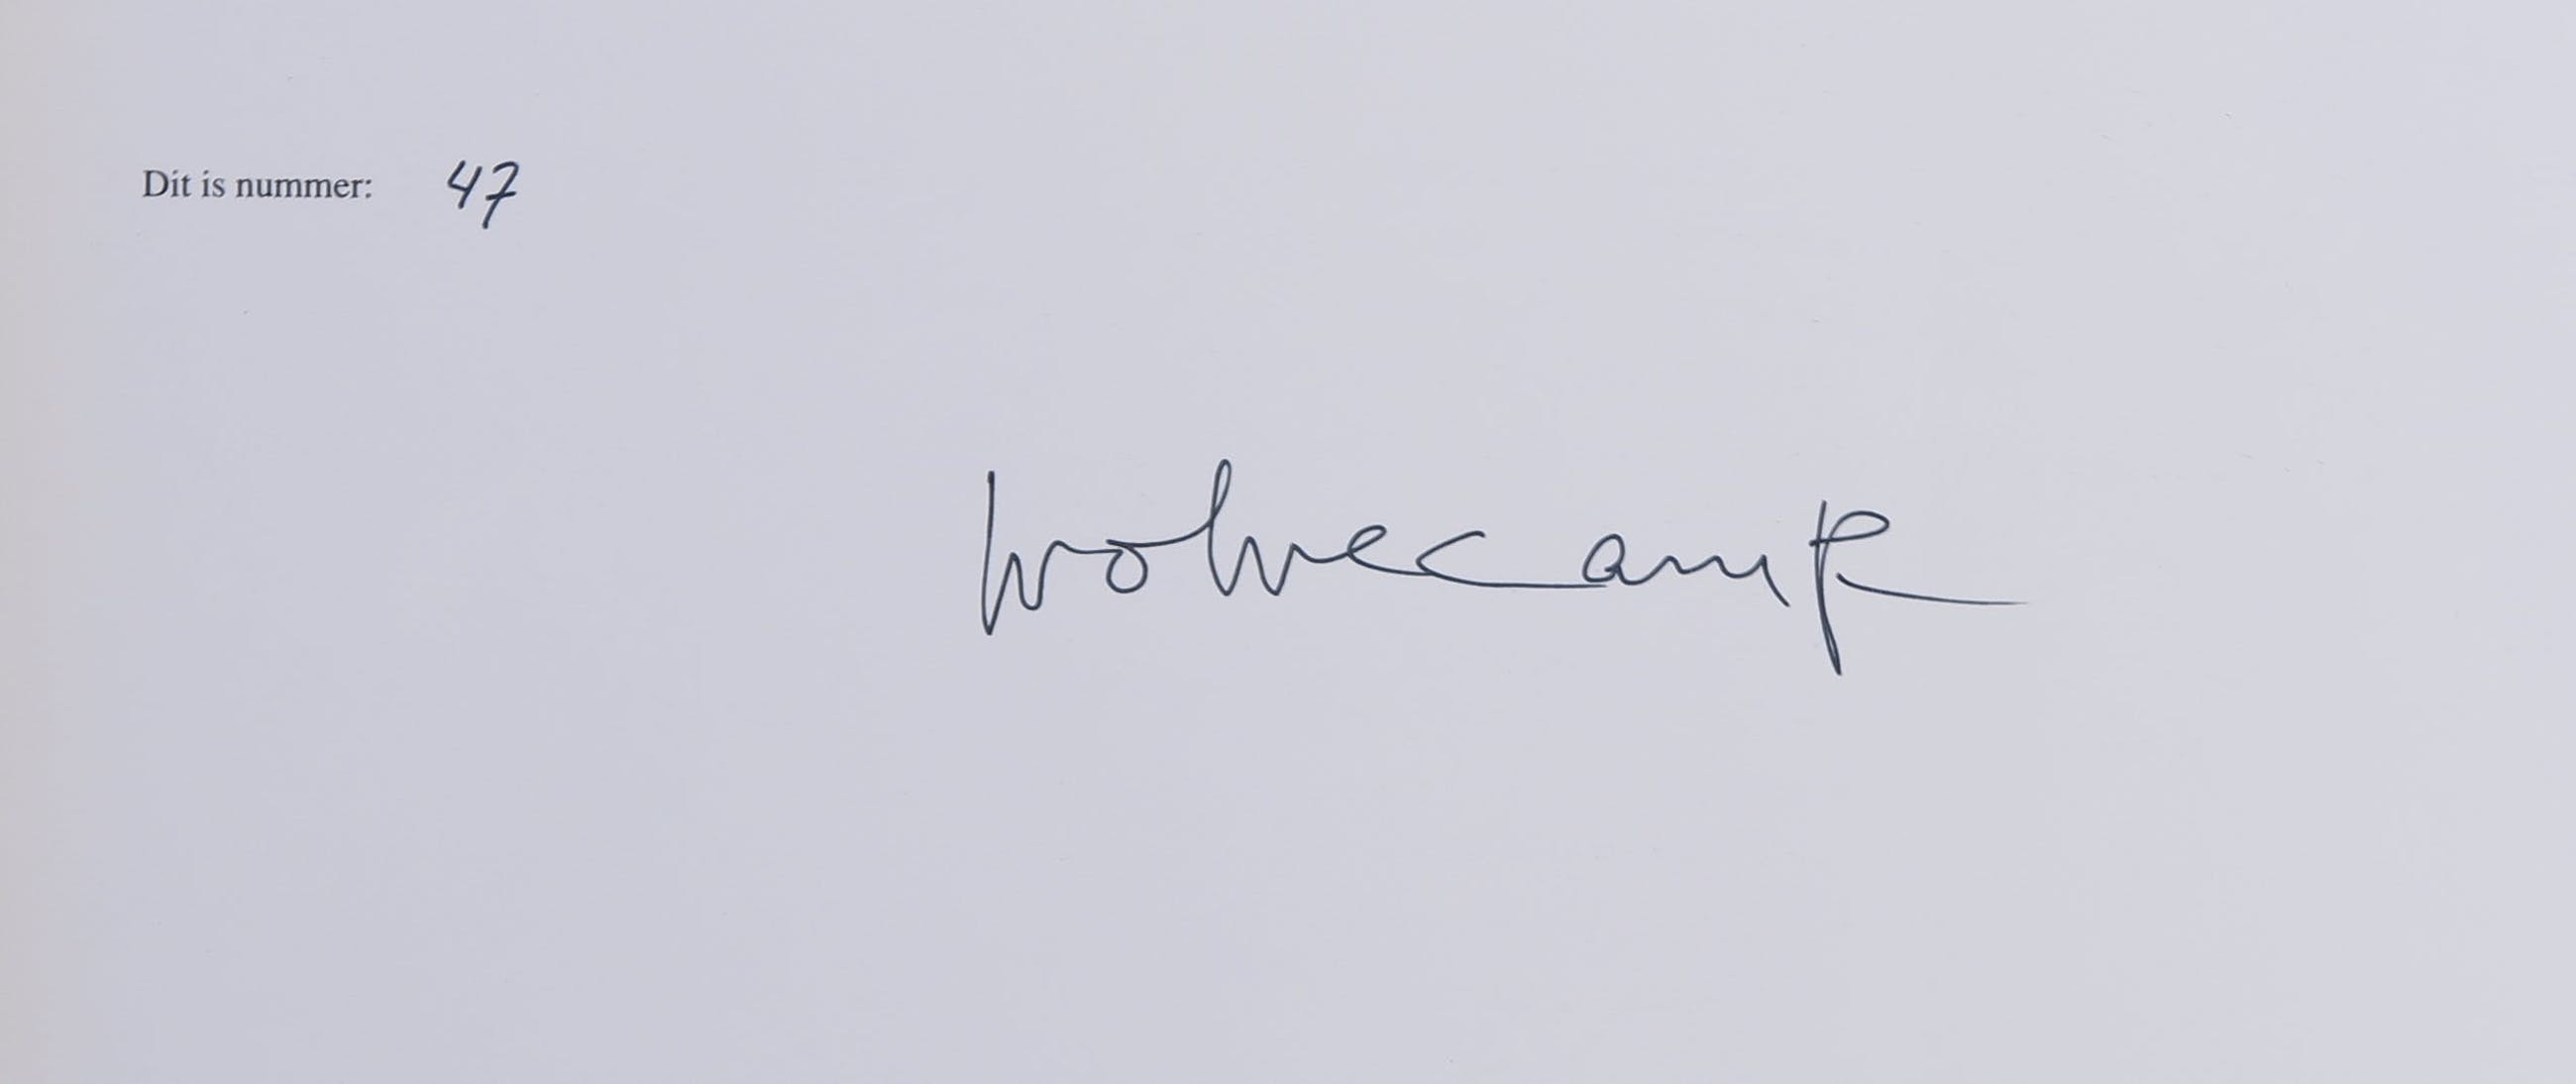 Dit is nummer: 47
Wolvecamp